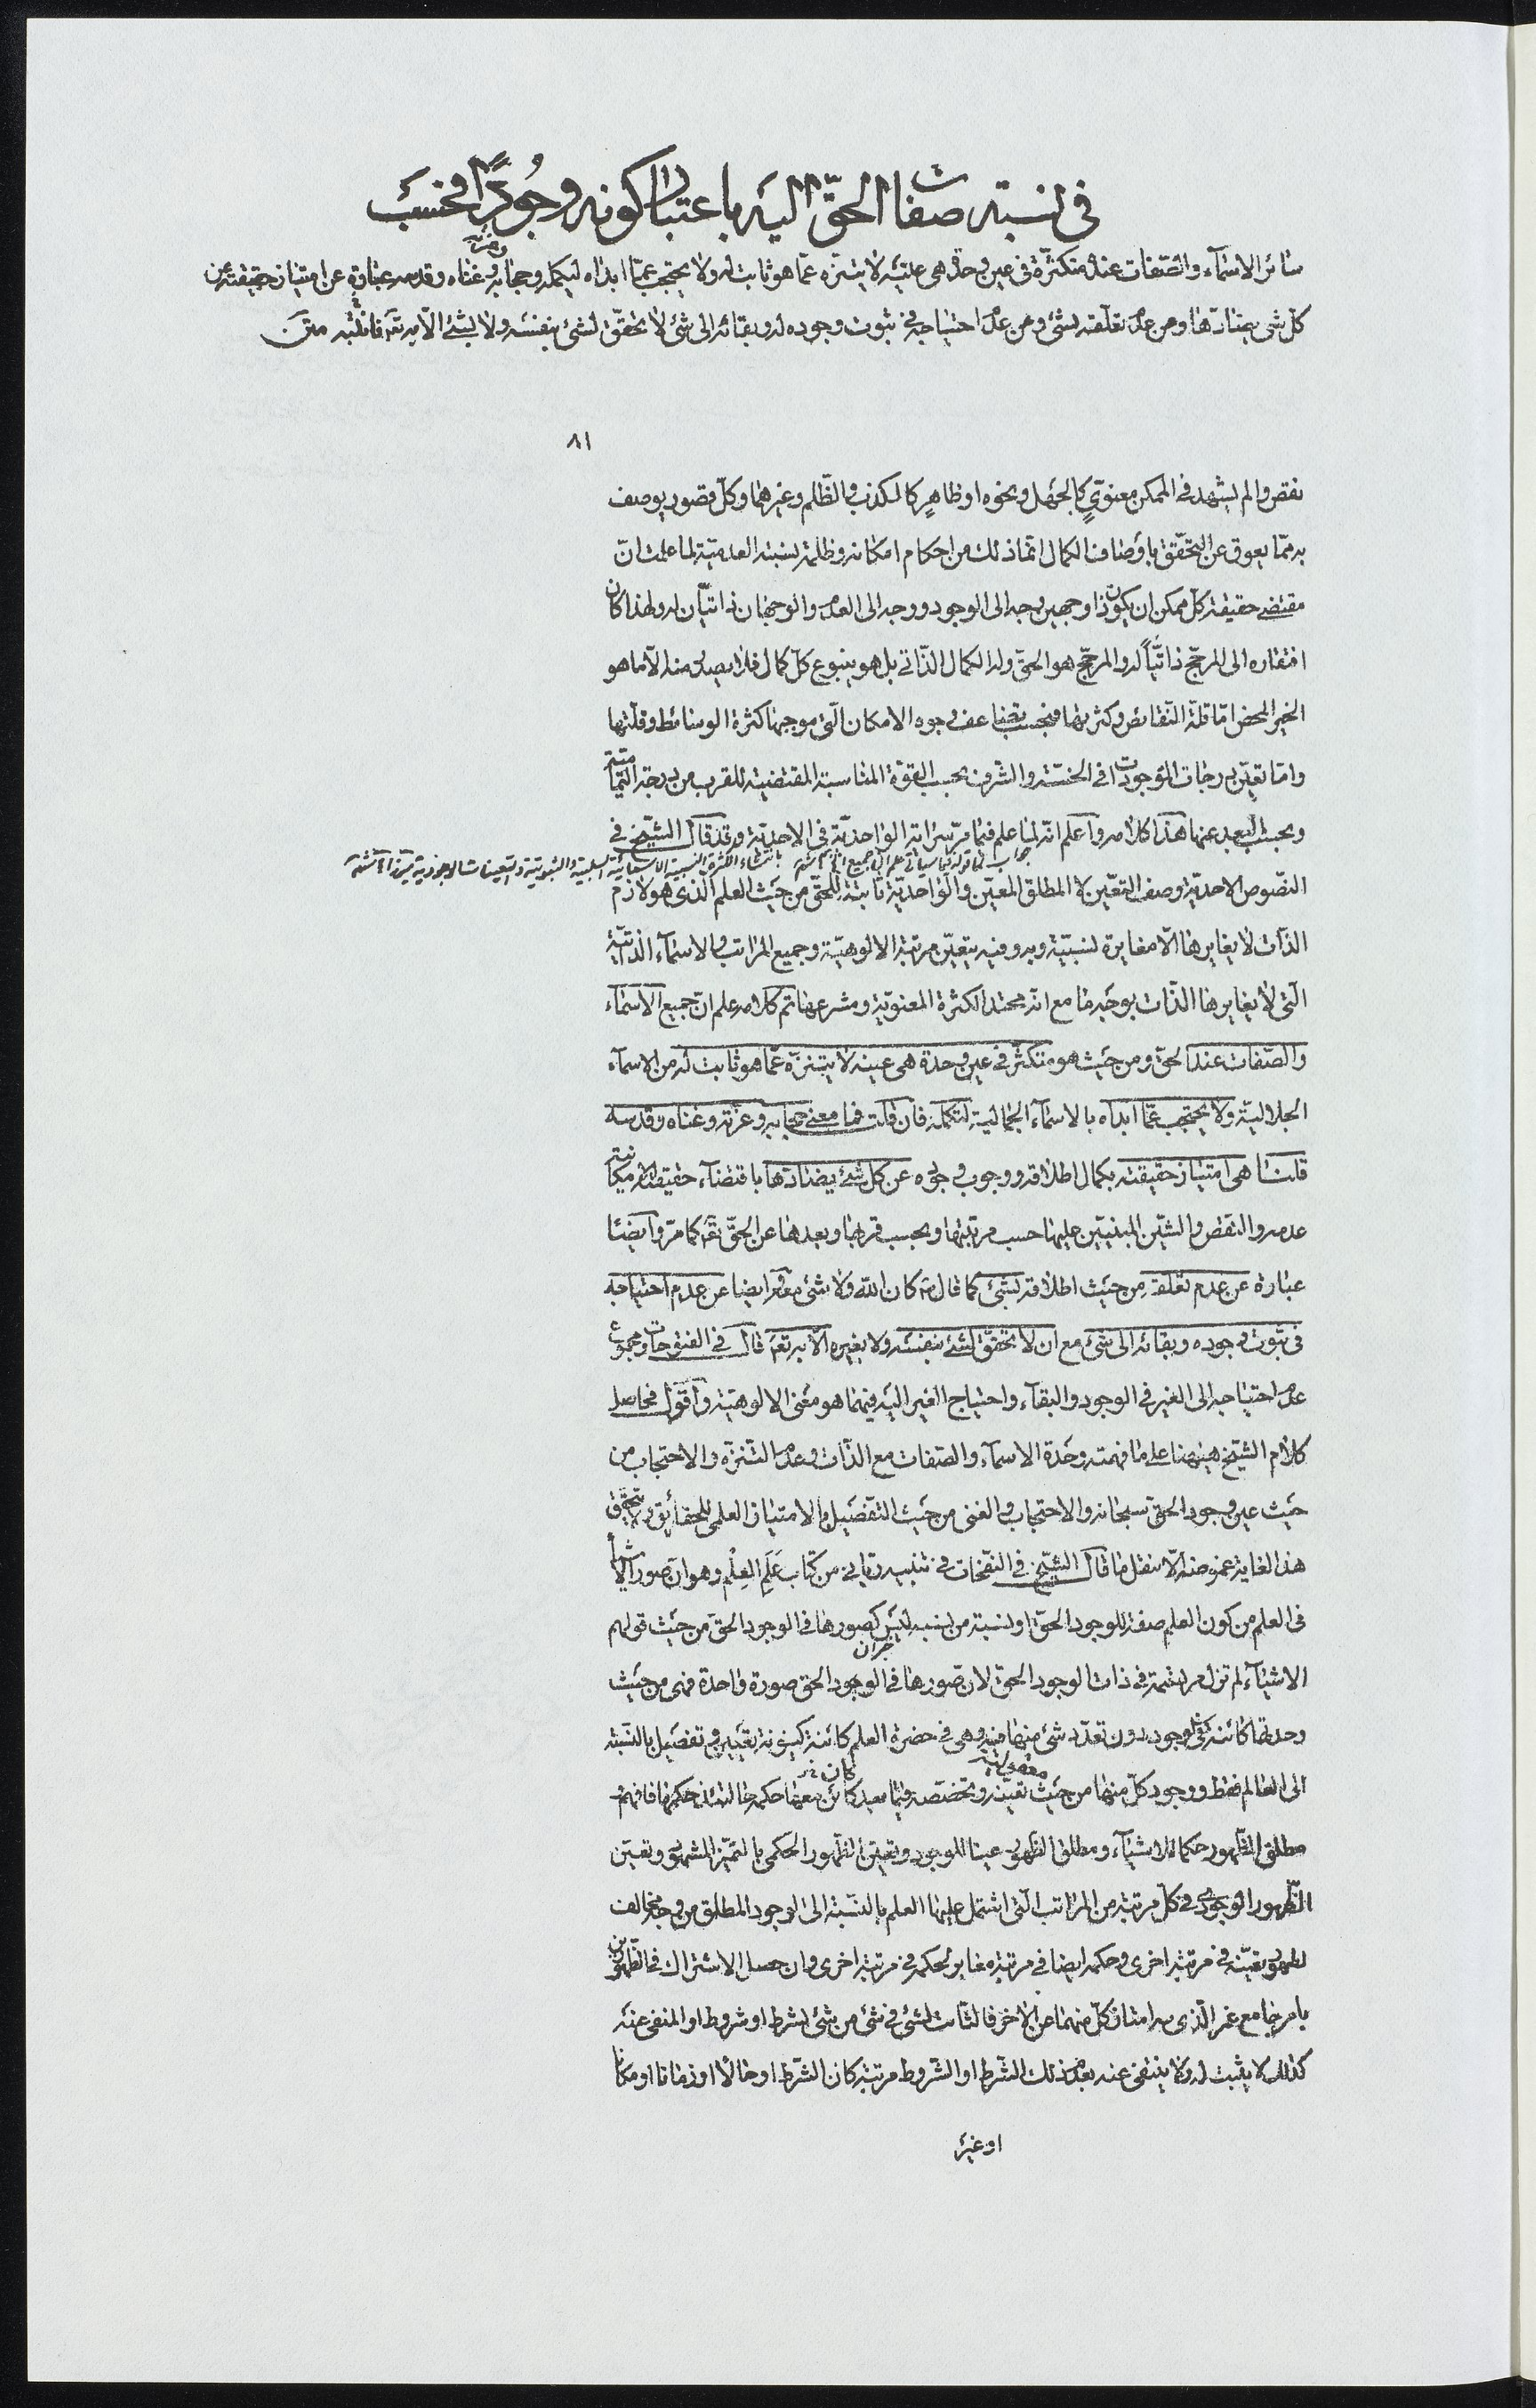 في نسبته صفات الحقّ اليه باعتبار كونه وجُودًا فحسب
سائر الاسمآء والصّفات عنده متكثّرة في عين وحدة هي عينه لا يتنزّه عمّا هو ثابت له ولا يحتجب عمّا ابداه ليكمله وحجابه وعزّته وغناه وقدسه عبارة عن امتياز حقيقته عن
كلّ شئ يضادّها ومن عدم تعلّقه بشئ ومن عدم احتياجه في ثبوت وجوده له وبقائه الى شئ لا تحقّق لشئ بنفسه ولا لشئ الّا به تعه فانتبه متن
٨١
نقص والم يشهد في الممكن معنويٍّ كالجهل ونحوه او ظاهرٍ كالكذب والظّلم وغيرهما وكلّ قصور يوصف
به ممّا يعوق عن التحقّق باوصاف الكمال انّما ذلك من احكام امكانه وظلمة نسبته العدميّة لما علمت انّ
مقتضى حقيقة كلّ ممكن ان يكون ذا وجهين وجه الى الوجود ووجه الى العدم والوجهان ذاتيّان له ولهذا كان
افتقاره الى المرجّح ذاتيّاً له والمرجّح هو الحقّ وله الكمال الذّاتي بل هو ينبوع كلّ كمال فلا يصدر منه الّا ما هو
الخير المحض امّا قلّة النّقائص وكثرتها فبحسب تضاعف وجوه الامكان الّتي موجبها كثرة الوسائط وقلّتها
وامّا تعيّن درجات الموجودات في الخسّة والشّرف بحسب القوّة المناسبة المقتضية للقرب من درجة التّماميّة
وبحسب البعد عنها هذا كلامه واعلم انّه لما علم فيما مرّ سراية الواحديّة في الاحديّة وقد قال الشّيخ في
جواب لما قوله فيما سيأتي علم انّ جميع الخ
النّصوص الاحديّة وصف التعيّن لا المطلق المعيّن والواحديّة ثابتة للحقّ من حيث العلم الّذي هو لازم
الذّات لا يغايرها الّا مغايرة نسبيّة وبه وفيه يتعيّن مرتبة الالوهيّة وجميع المراتب والاسمآء الذّاتيّة
الّتي لا يغايرها الذّات بوجه ما مع انّه محتد الكثرة المعنويّة ومشرعها تمّ كلامه علم انّ جميع الاسمآء
والصّفات عند الحقّ ومن حيث هو متكثّر في عين وحدة هي عينه لا يتنزّه عمّا هو ثابت له من الاسمآء
الجلاليّة ولا يحتجب عمّا ابداه بالاسمآء الجماليّة لتكمله فان قلت فما معنى حجابه وعزّته وغناه وقدسه
قلنا هي امتياز حقيقته بكمال اطلاقه ووجوب وجوده عن كلّ شئ يضادّها باقتضآء حقيقته الامكانيّة
عدمه والنّقص والشّين المبنيّين عليها حسب مرتبتها وبحسب قربها وبعدها عن الحقّ تعه كما مرّ وايضا
عبارة عن عدم تعلّقه من حيث اطلاقه بشئ كما قال كان اللّه ولا شئ معه وايضا عن عدم احتياجه
في ثبوت وجوده وبقائه الى شئ مع ان لا تحقّق لشئ بنفسه ولا بغيره الّا به تعه قال في الفتوحات ومجموع
عدم احتياجه الى الغير في الوجود والبقآء واحتياج الغير اليه فيهما هو معنى الالوهيّة واقول فحاصل
كلام الشّيخ هيهنا على ما فهمته وحدة الاسمآء والصّفات مع الذّات وعدم التّنزّه والاحتجاب من
حيث عين وجود الحقّ سبحانه والاحتجاب والغنى من حيث التّفصيل بالامتياز العلمي للحقائق ولا تحقيق
هذا لغاية غموضه الّا بنقل ما قال الشّيخ في النّفحات في تنبيه ربّاني من كتاب علم العلم وهو انّ صور الاشيآء
في العلم من كون العلم صفة للوجود الحقّ او نسبة من نسبه ليس كصورها في الوجود الحقّ من حيث قولهم
الاشيآء لم تزل مرتسمة في ذات الوجود الحقّ لانّ صورها في الوجود الحقّ صورة واحدة فهي من حيث
وحدتها كائنة في وجوده دون تعدّد شئ منها فيه وهي في حضرة العلم كائنة كينونة تعيين وتفصيل بالنّسبة
الى العالم فقط ووجود كلّ منها من حيث تعيّنه وتخصّصه فيما بعد كائن معها حكمه حالتئذ حكمها فافهم
مطلق الظّهور حكما للاشيآء ومطلق الظّهور عينا للوجود وتعيّن الظّهور الحكمي بالتميّز المشهود وتعيّن
الظّهور الوجودي في كلّ مرتبة من المراتب الّتي اشتمل عليها العلم بالنّسبة الى الوجود المطلق من وجه مخالف
لظهور تعيّنه في مرتبة اخرى وحكمه ايضا في مرتبة مغاير لحكمه في مرتبة اخرى وان حصل الاشتراك في الظّهورين
بامر جامع غير الّذي به امتاز كلّ منهما عن الاخر فالثّابت لشئ في شئ من شئ بشرط او شروط او المنفي عنه
كذلك لا يثبت له ولا ينتفي عنه بعدم ذلك الشّرط او الشّروط مرتبة كان الشّرط او حالًا او زمانا او مكانا
او غير